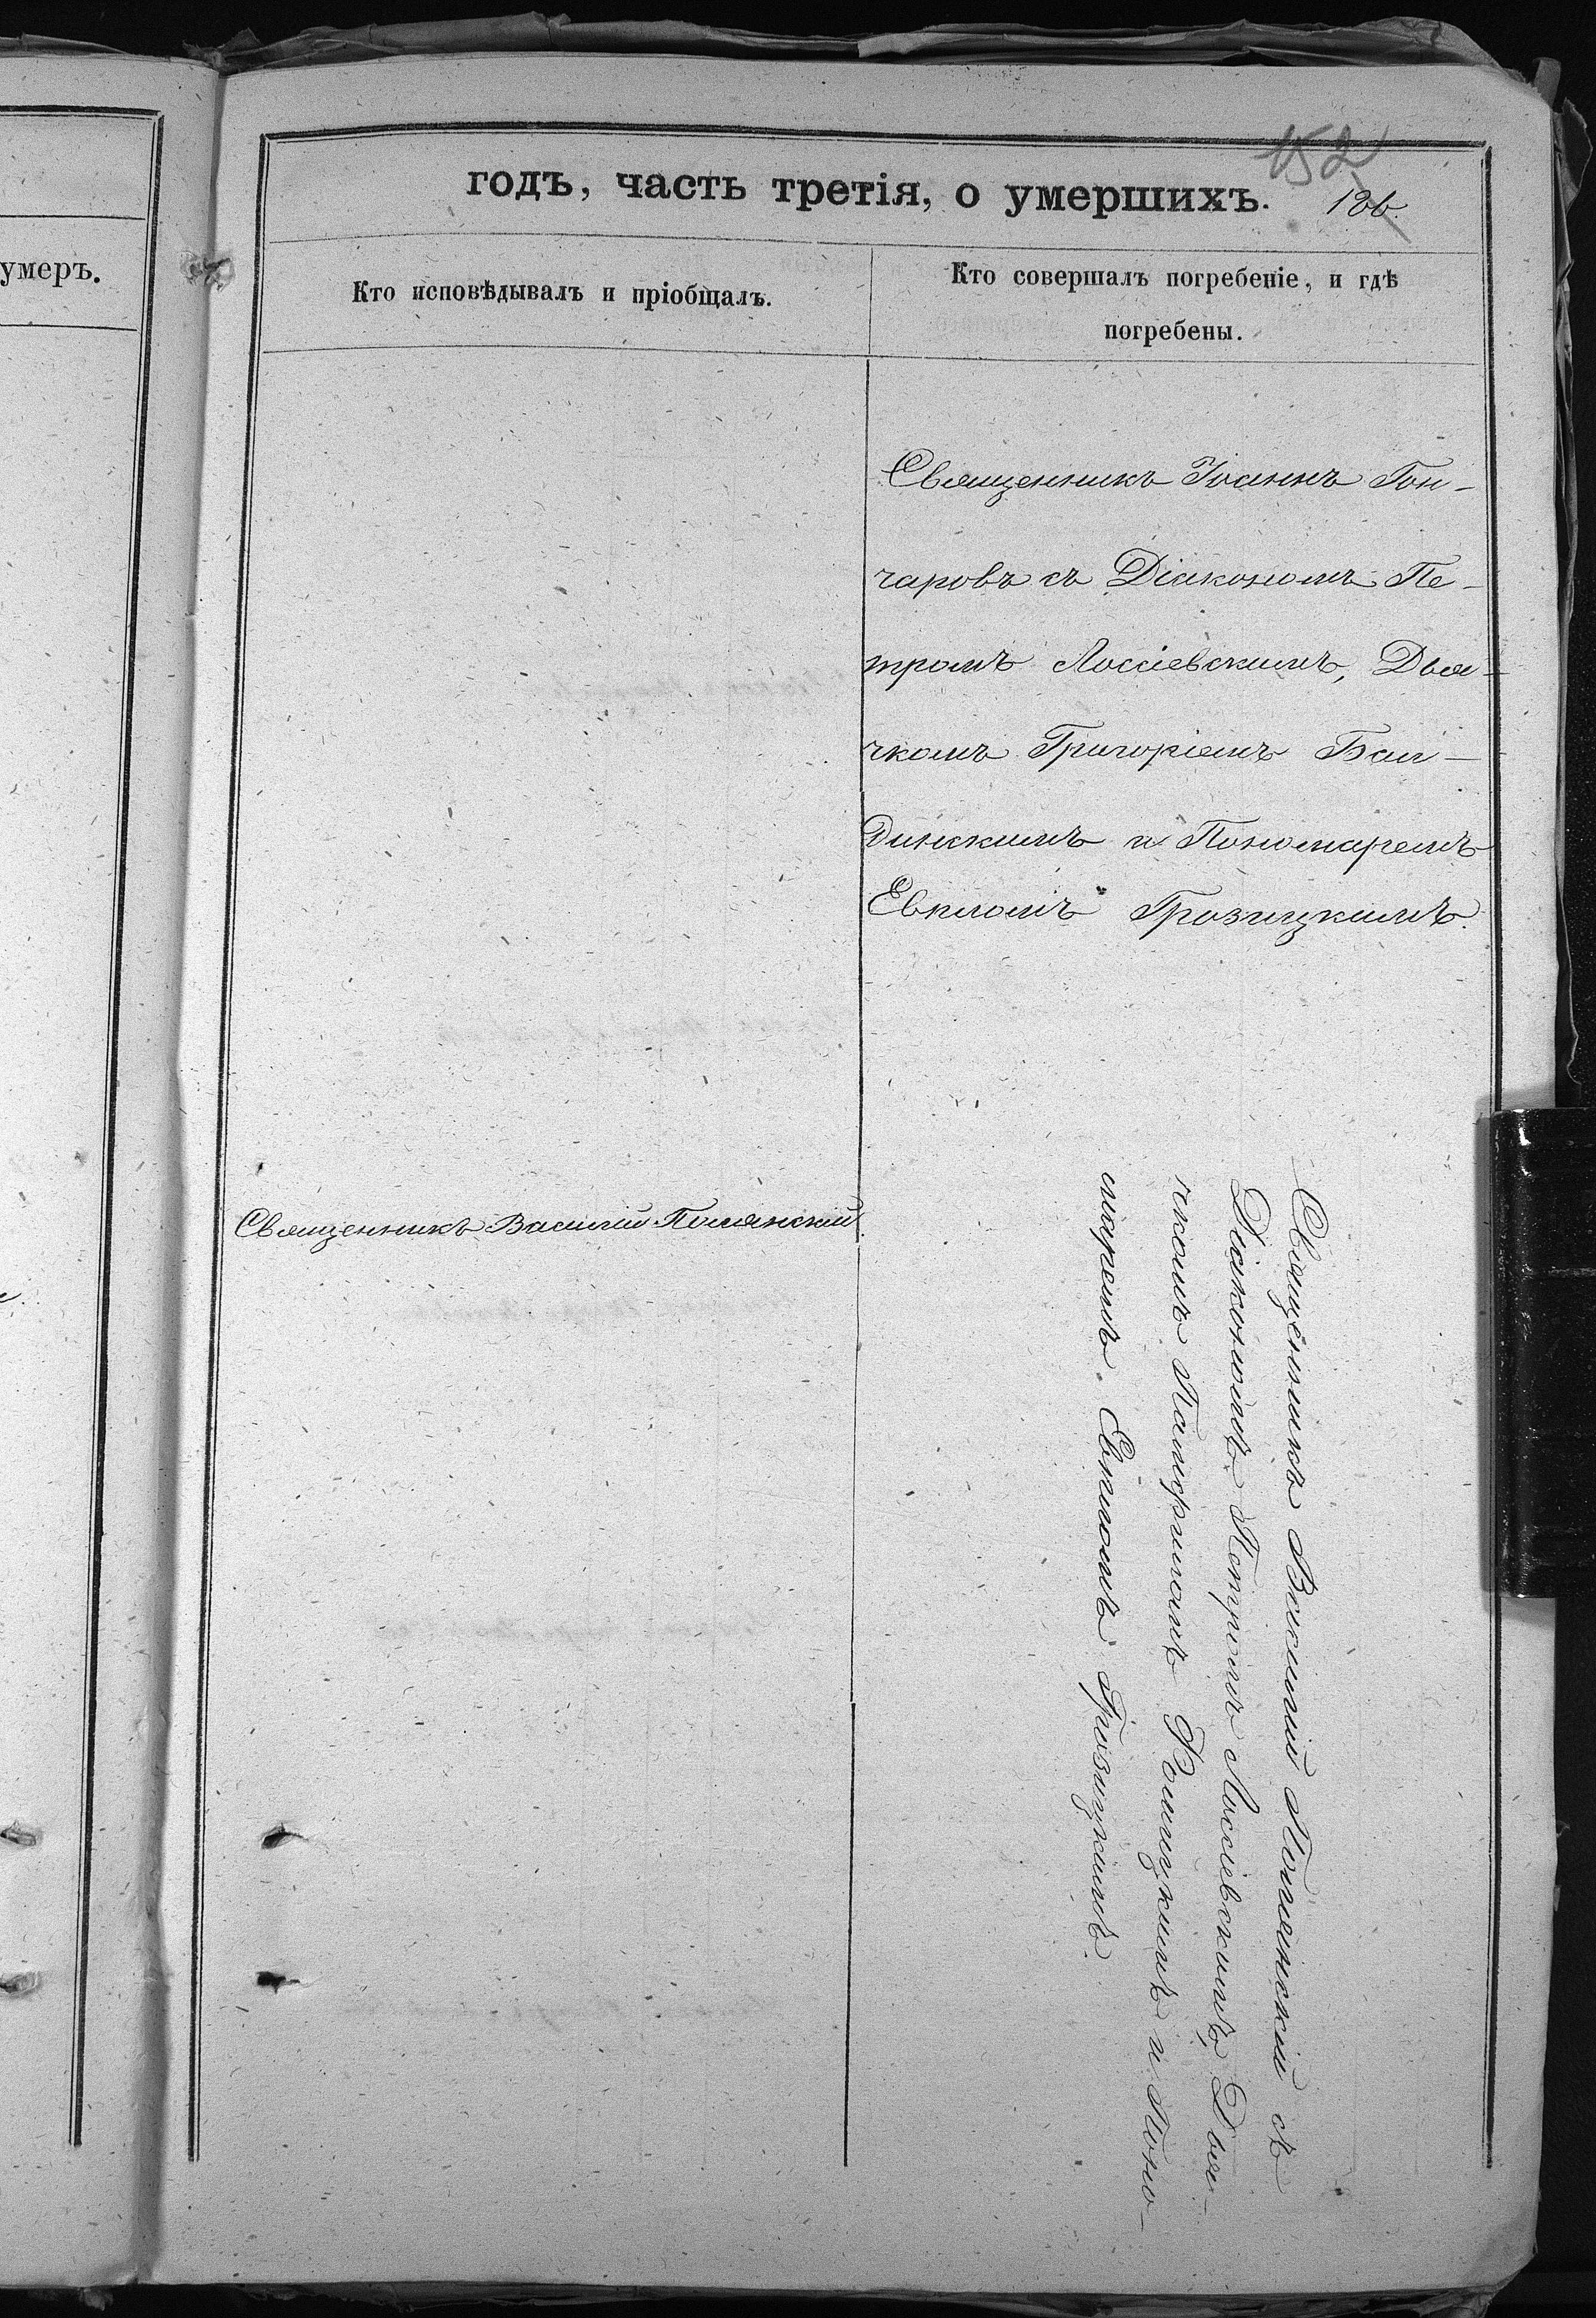 умеръ.
годъ, часть третія, о умершихъ.
152
186.
Кто исповѣдывалъ и пріобщалъ.
Кто совершалъ погребеніе, и гдѣ
погребены.
Священникъ Іоаннъ Гон-
чаровъ съ Діакономъ Пе-
тромъ Лоссіевскимъ, Дья-
чкомъ Григоріемъ Бал-
динскимъ и Пономаремъ
Евпломъ Грозицкимъ.
Священникъ Василій Полянскій.
Священникъ Василій Полянскій съ
Діакономъ Петромъ Лоссіевскимъ, Дья-
чкомъ Памфиломъ Рошицкимъ и Поно-
маремъ Евпломъ Грозицкимъ.